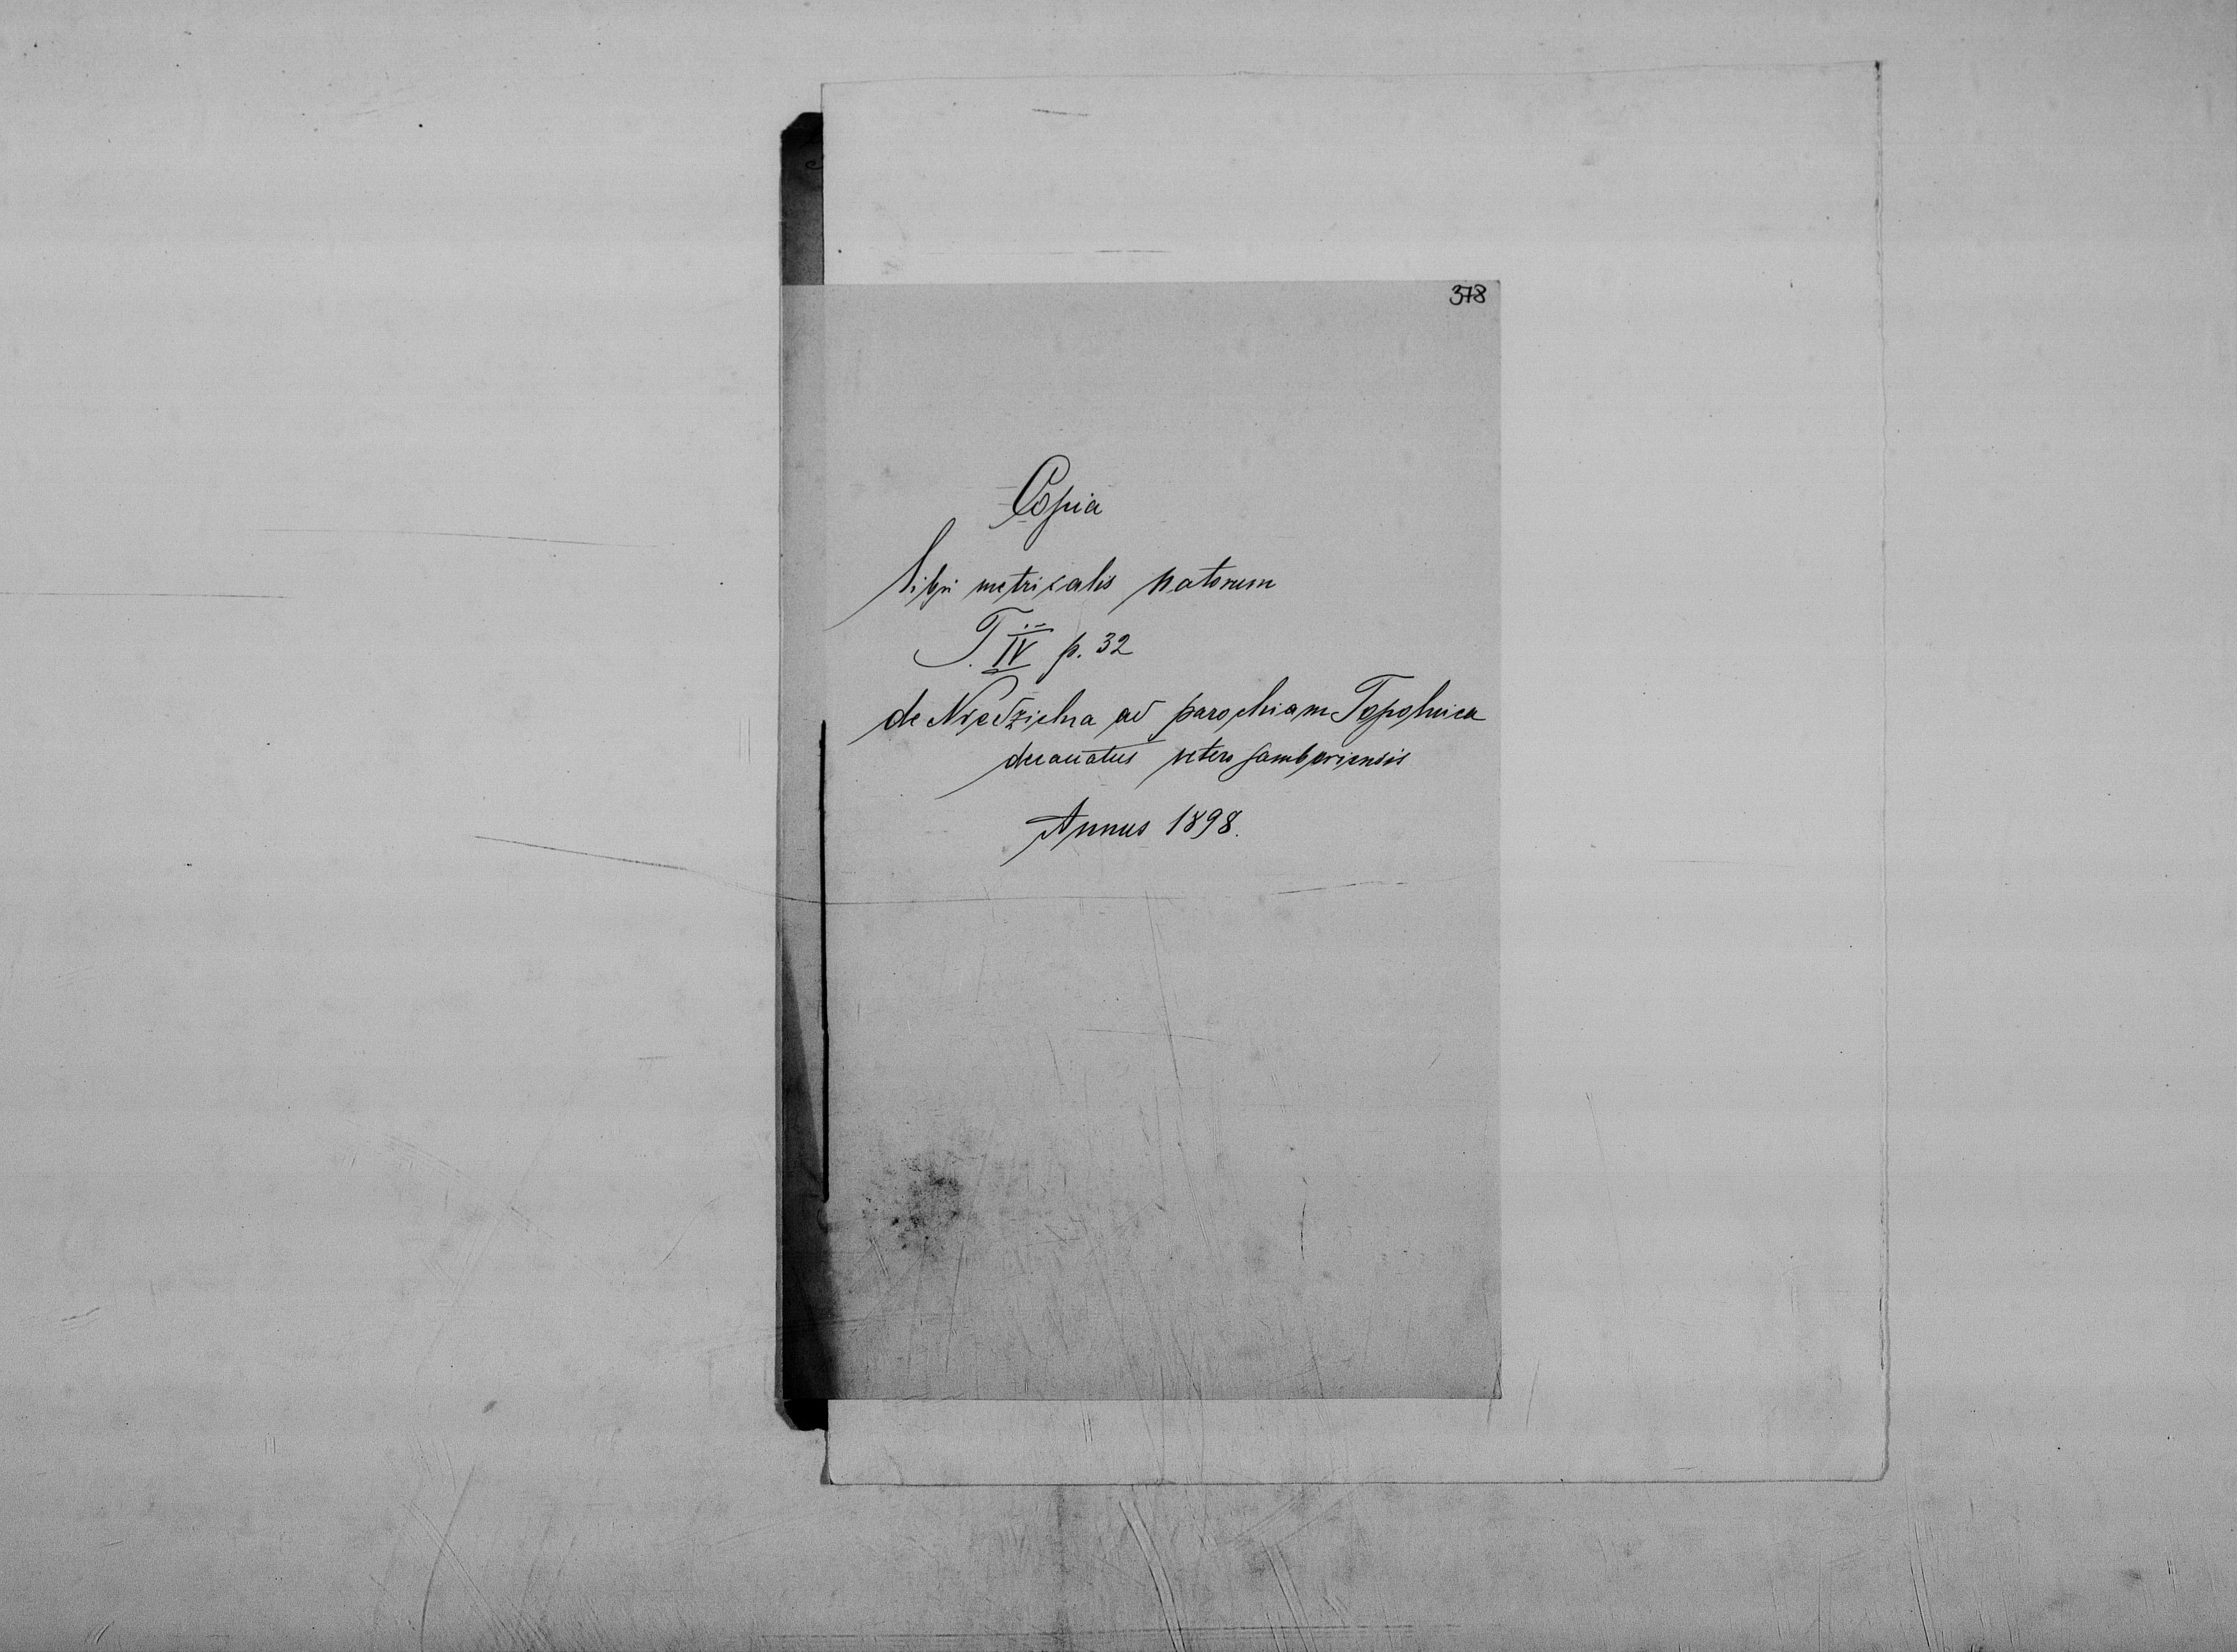 378
Copia
libri metricalis natorum
T. IV p. 32
de Niedzielna ad parochiam Topolnica
decanatus vetero Samboriensis
Annus 1898.